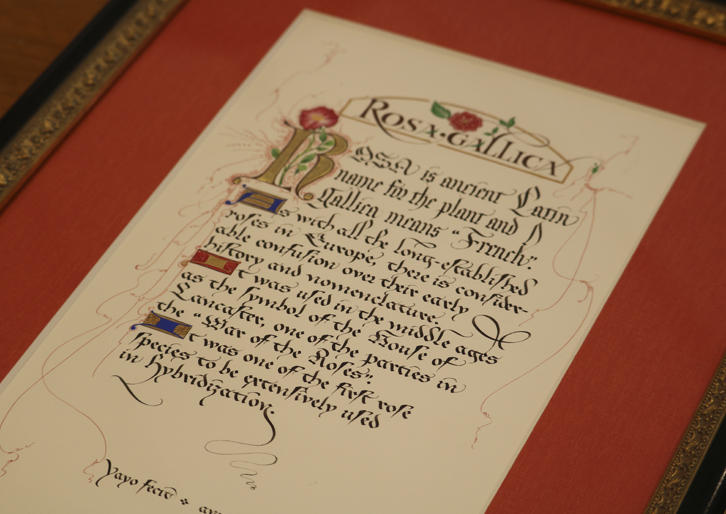 ROSA·GALLICA
ROSA is ancient Latin
name for the plant and
Gallica means "French".
As with all the long-established
roses in Europe, there is consider-
able confusion over their early
history and nomenclature.
It was used in the middle ages
as the symbol of the House of
Lancaster, one of the parties in
the "War of the Roses".
It was one of the first rose
species to be extensively used
in hybridization.
Yayo fecit